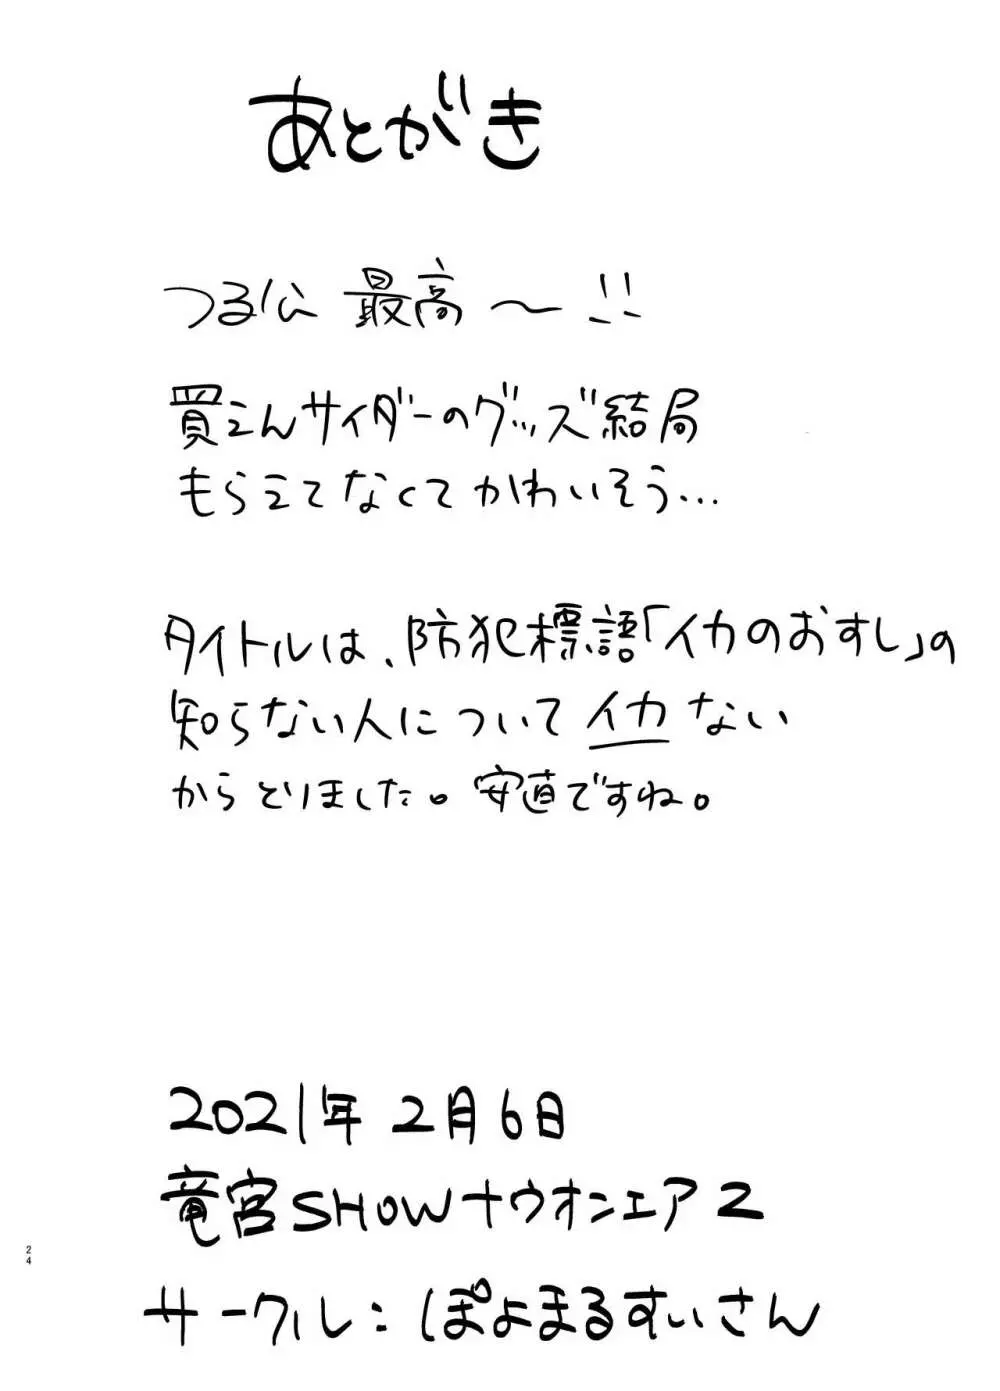 あとがき
つる公 最高～!!
買えんサイダーのグッズ結局
もらえてなくてかわいそう…
タイトルは、防犯標語「イカのおすし」の
知らない人についてイカない
からとりました。安直ですね。
2021年 2月6日
竜宮SHOWナウオンエア2
サークル:ぽよまるすいさん
24